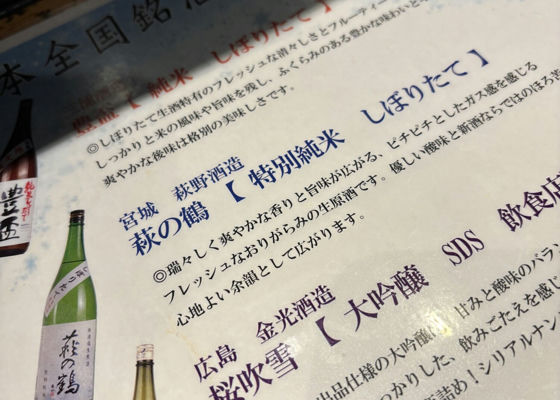 本全国銘酒
豊盃【純米 しぼりたて】
◎しぼりたて生酒特有のフレッシュな清々しさとフルーティー
しっかりと米の風味や旨味を残し、ふくらみのある豊かな味わいと
爽やかな後味は格別の美味しさです。
宮城 萩野酒造
萩の鶴【特別純米 しぼりたて】
◎瑞々しく爽やかな香りと旨味が広がる、ピチピチとしたガス感を感じる
フレッシュなおりがらみの生原酒です。優しい酸味と新酒ならではのほろ苦
心地よい余韻として広がります。
広島 金光酒造
桜吹雪【大吟醸 SDS 飲食店
出品仕様の大吟醸 甘みと酸味のバラン
っかりした、飲みごたえを感じ
詰め!シリアルナン
豊盃
しぼりたて
萩の鶴